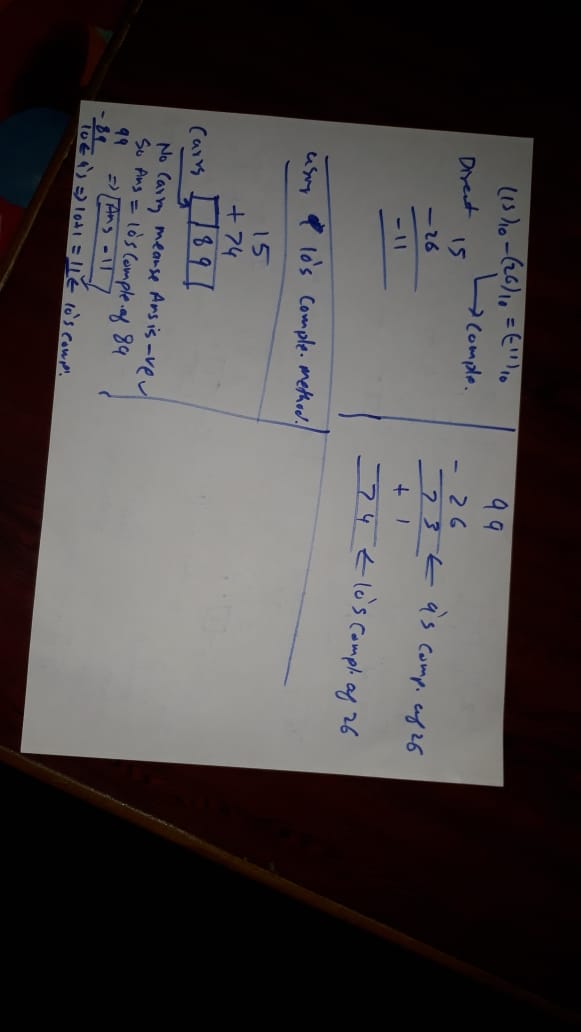 (15)10 - (26)10 = (-11)10
↳ comple.
Direct 15
-26
-11
99
- 26
73 ← 9's comp. of 26
+ 1
74 ← 10's compl. of 26
using 10's comple. method.
15
+ 74
Carry 89
No carry means Ans is -ve
So Ans = 10's comple of 89
99 ⇒ Ans -11
-89
10 ← 9's ⇒ 10+1 = 11 ← 10's comp.